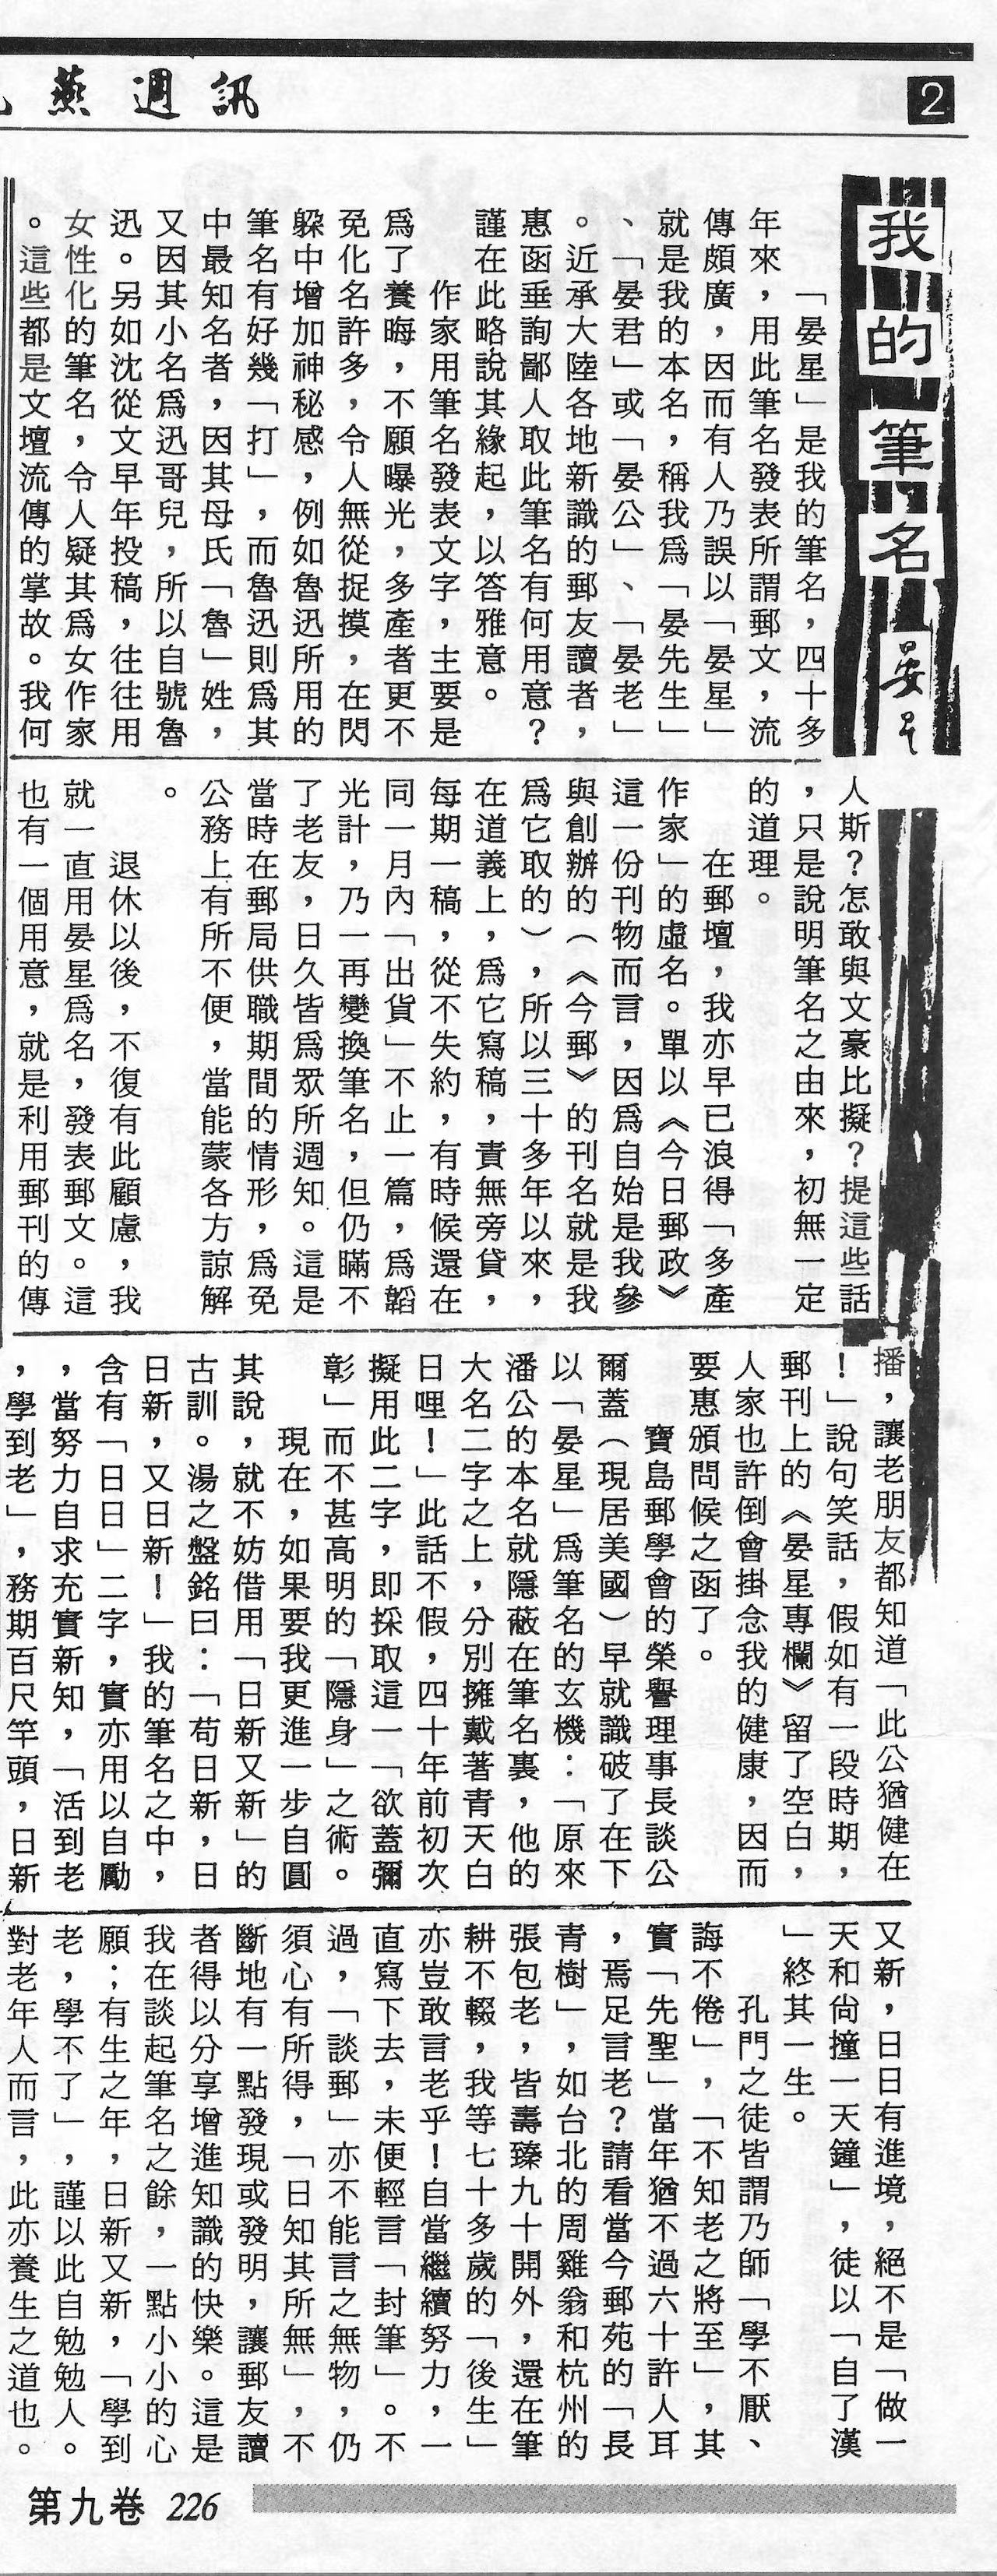 燕週訊
2
我的筆名
晏星
「晏星」是我的筆名，四十多
年來，用此筆名發表所謂郵文，流
傳頗廣，因而有人乃誤以「晏星」
就是我的本名，稱我爲「晏先生」
、「晏君」或「晏公」、「晏老」
。近承大陸各地新識的郵友讀者，
惠函垂詢鄙人取此筆名有何用意？
謹在此略說其緣起，以答雅意。
作家用筆名發表文字，主要是
爲了養晦，不願曝光，多產者更不
免化名許多，令人無從捉摸，在閃
躲中增加神秘感，例如魯迅所用的
筆名有好幾「打」，而魯迅則爲其
中最知名者，因其母氏「魯」姓，
又因其小名爲迅哥兒，所以自號魯
迅。另如沈從文早年投稿，往往用
女性化的筆名，令人疑其爲女作家
。這些都是文壇流傳的掌故。我何
人斯？怎敢與文豪比擬？提這些話
，只是說明筆名之由來，初無一定
的道理。
在郵壇，我亦早已浪得「多產
作家」的虛名。單以《今日郵政》
這一份刊物而言，因爲自始是我參
與創辦的（《今郵》的刊名就是我
爲它取的），所以三十多年以來，
在道義上，爲它寫稿，責無旁貸，
每期一稿，從不失約，有時候還在
同一月內「出貨」不止一篇，爲韜
光計，乃一再變換筆名，但仍瞞不
了老友，日久皆爲眾所週知。這是
當時在郵局供職期間的情形，爲免
公務上有所不便，當能蒙各方諒解
。
退休以後，不復有此顧慮，我
就一直用晏星爲名，發表郵文。這
也有一個用意，就是利用郵刊的傳
播，讓老朋友都知道「此公猶健在
！」說句笑話，假如有一段時期，
郵刊上的《晏星專欄》留了空白，
人家也許倒會掛念我的健康，因而
要惠頒問候之函了。
寶島郵學會的榮譽理事長談公
爾蓋（現居美國）早就識破了在下
以「晏星」爲筆名的玄機：「原來
潘公的本名就隱蔽在筆名裏，他的
大名二字之上，分別擁戴著青天白
日哩！」此話不假，四十年前初次
擬用此二字，即採取這一「欲蓋彌
彰」而不甚高明的「隱身」之術。
現在，如果要我更進一步自圓
其說，就不妨借用「日新又新」的
古訓。湯之盤銘曰：「苟日新，日
日新，又日新！」我的筆名之中，
含有「日日」二字，實亦用以自勵
，當努力自求充實新知，「活到老
，學到老」，務期百尺竿頭，日新
又新，日日有進境，絕不是「做一
天和尚撞一天鐘」，徒以「自了漢
」終其一生。
孔門之徒皆謂乃師「學不厭、
誨不倦」，「不知老之將至」，其
實「先聖」當年猶不過六十許人耳
，焉足言老？請看當今郵苑的「長
青樹」，如台北的周雞翁和杭州的
張包老，皆壽臻九十開外，還在筆
耕不輟，我等七十多歲的「後生」
亦豈敢言老乎！自當繼續努力，一
直寫下去，未便輕言「封筆」。不
過，「談郵」亦不能言之無物，仍
須心有所得，「日知其所無」，不
斷地有一點發現或發明，讓郵友讀
者得以分享增進知識的快樂。這是
我在談起筆名之餘，一點小小的心
願；有生之年，日新又新，「學到
老，學不了」，謹以此自勉勉人。
對老年人而言，此亦養生之道也。
第九卷 226